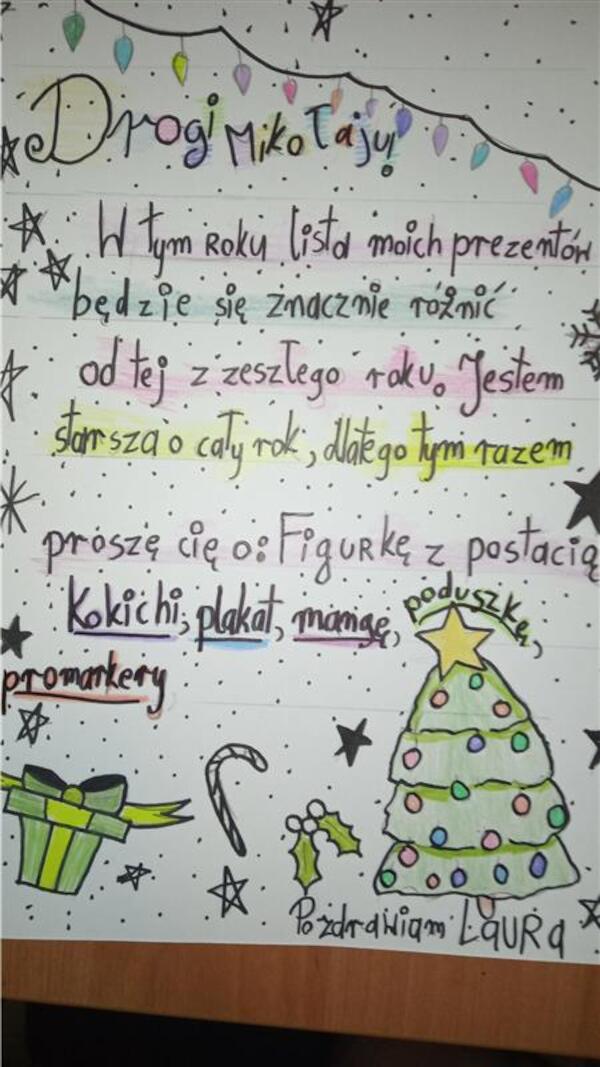 Drogi Mikołaju!
W tym roku lista moich prezentów
będzie się znacznie różnić
od tej z zeszłego roku. Jestem
starsza o cały rok, dlatego tym razem
proszę cię o: Figurkę z postacią
Kokichi, plakat, mangę, poduszkę,
promarkery
Pozdrawiam Laura